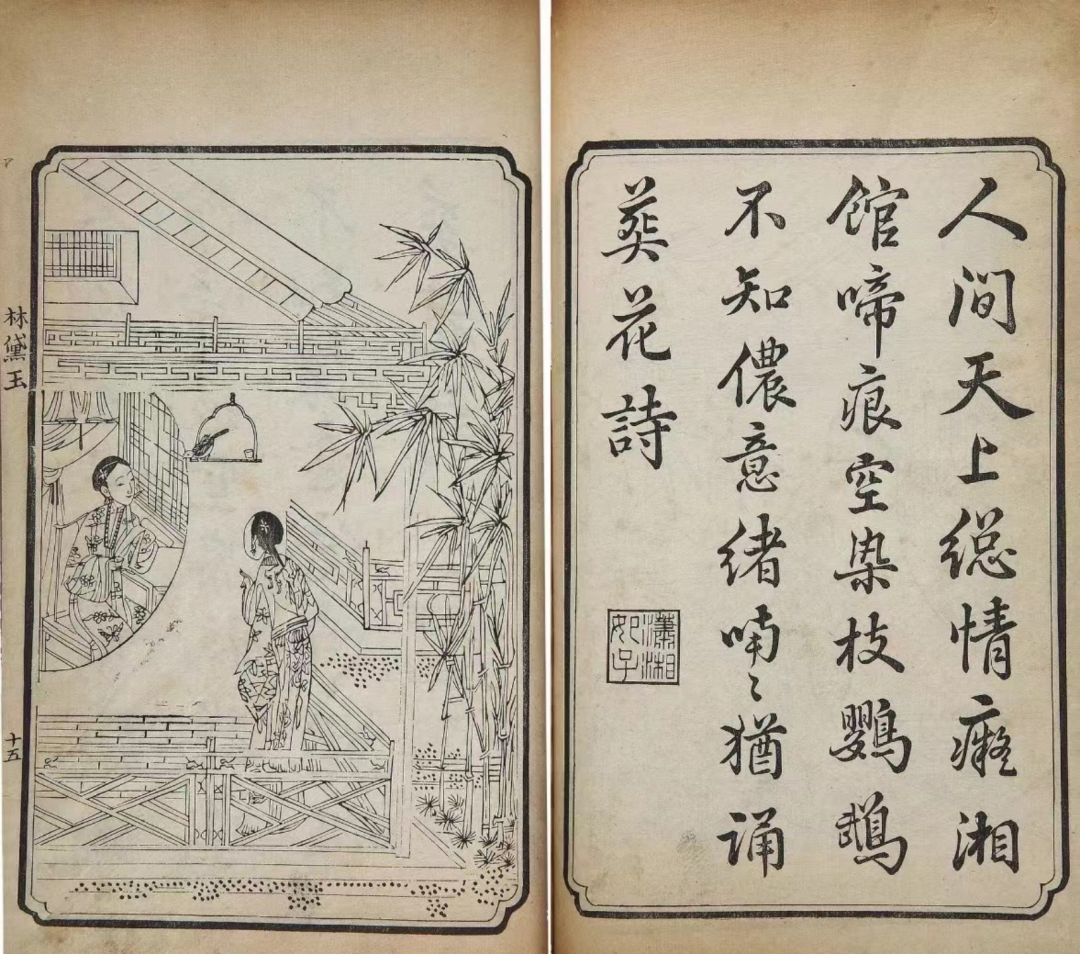 人間天上緫情癡湘
館啼痕空染枝鸚鵡
不知儂意緒喃〻猶誦
葬花詩
瀟湘
妃子
林黛玉
十五